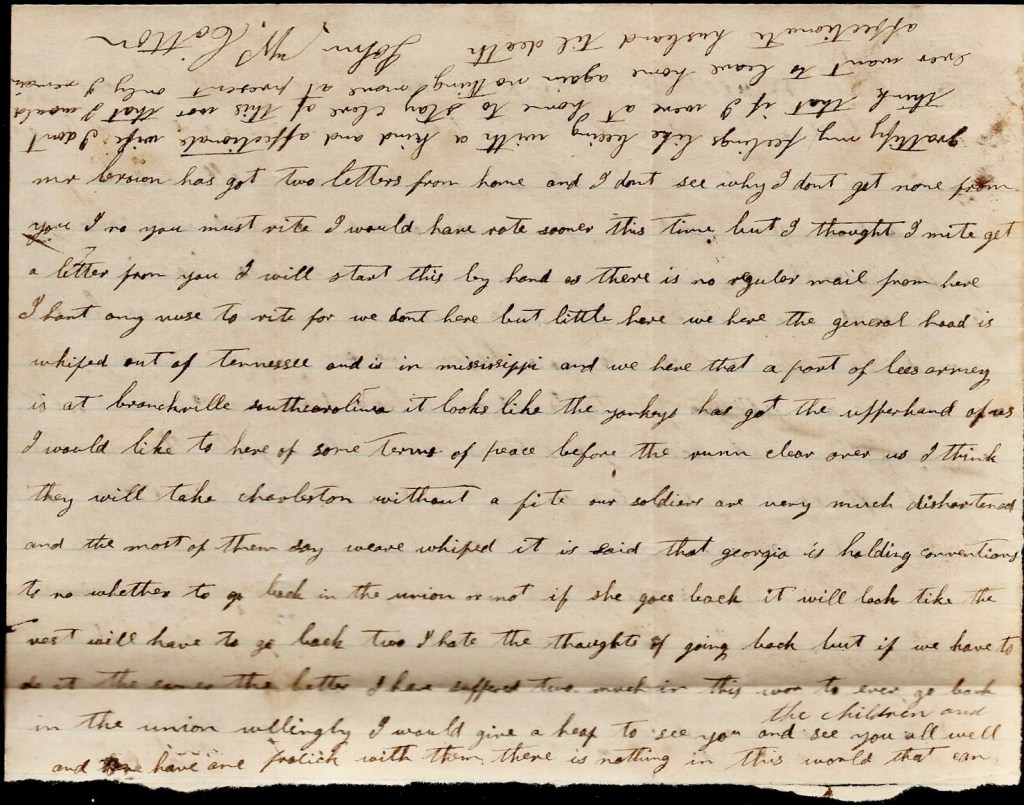 mr brown has got two letters from home and I dont see why I dont get none from
you I no you must rite I would have rote sooner this time but I thought I mite get
a letter from you I will start this by hand as there is no regular mail from here
I hant any nuse to rite for we dont here but little here we here the general hood is
whiped out of tennessee and is in mississippi and we here that a part of lees armey
is at branchville southcarolina it looks like the yankeys has got the upperhand of us
I would like to here of some terms of peace before the runn clear over us I think
they will take charleston without a fite our soldiers are very much dishartened
and the most of them say weare whiped it is said that georgia is holding conventions
to no whether to go back in the union or not if she goes back it will look like the
rest will have to go back two I hate the thoughts of going back but if we have to
do it the sooner the better I have suffered two much in this wor to ever go back
in the union willingly I would give a heap to see you and see you all well
the children and
and have one frolick with them there is nothing in this world that can
gratify my feelings like being with a kind and affectionate wife I dont
think that if I were at home to stay clere of this wor that I would
ever want to leave home again nothing more at present only I remain
affectionate husband til death John W Cotton